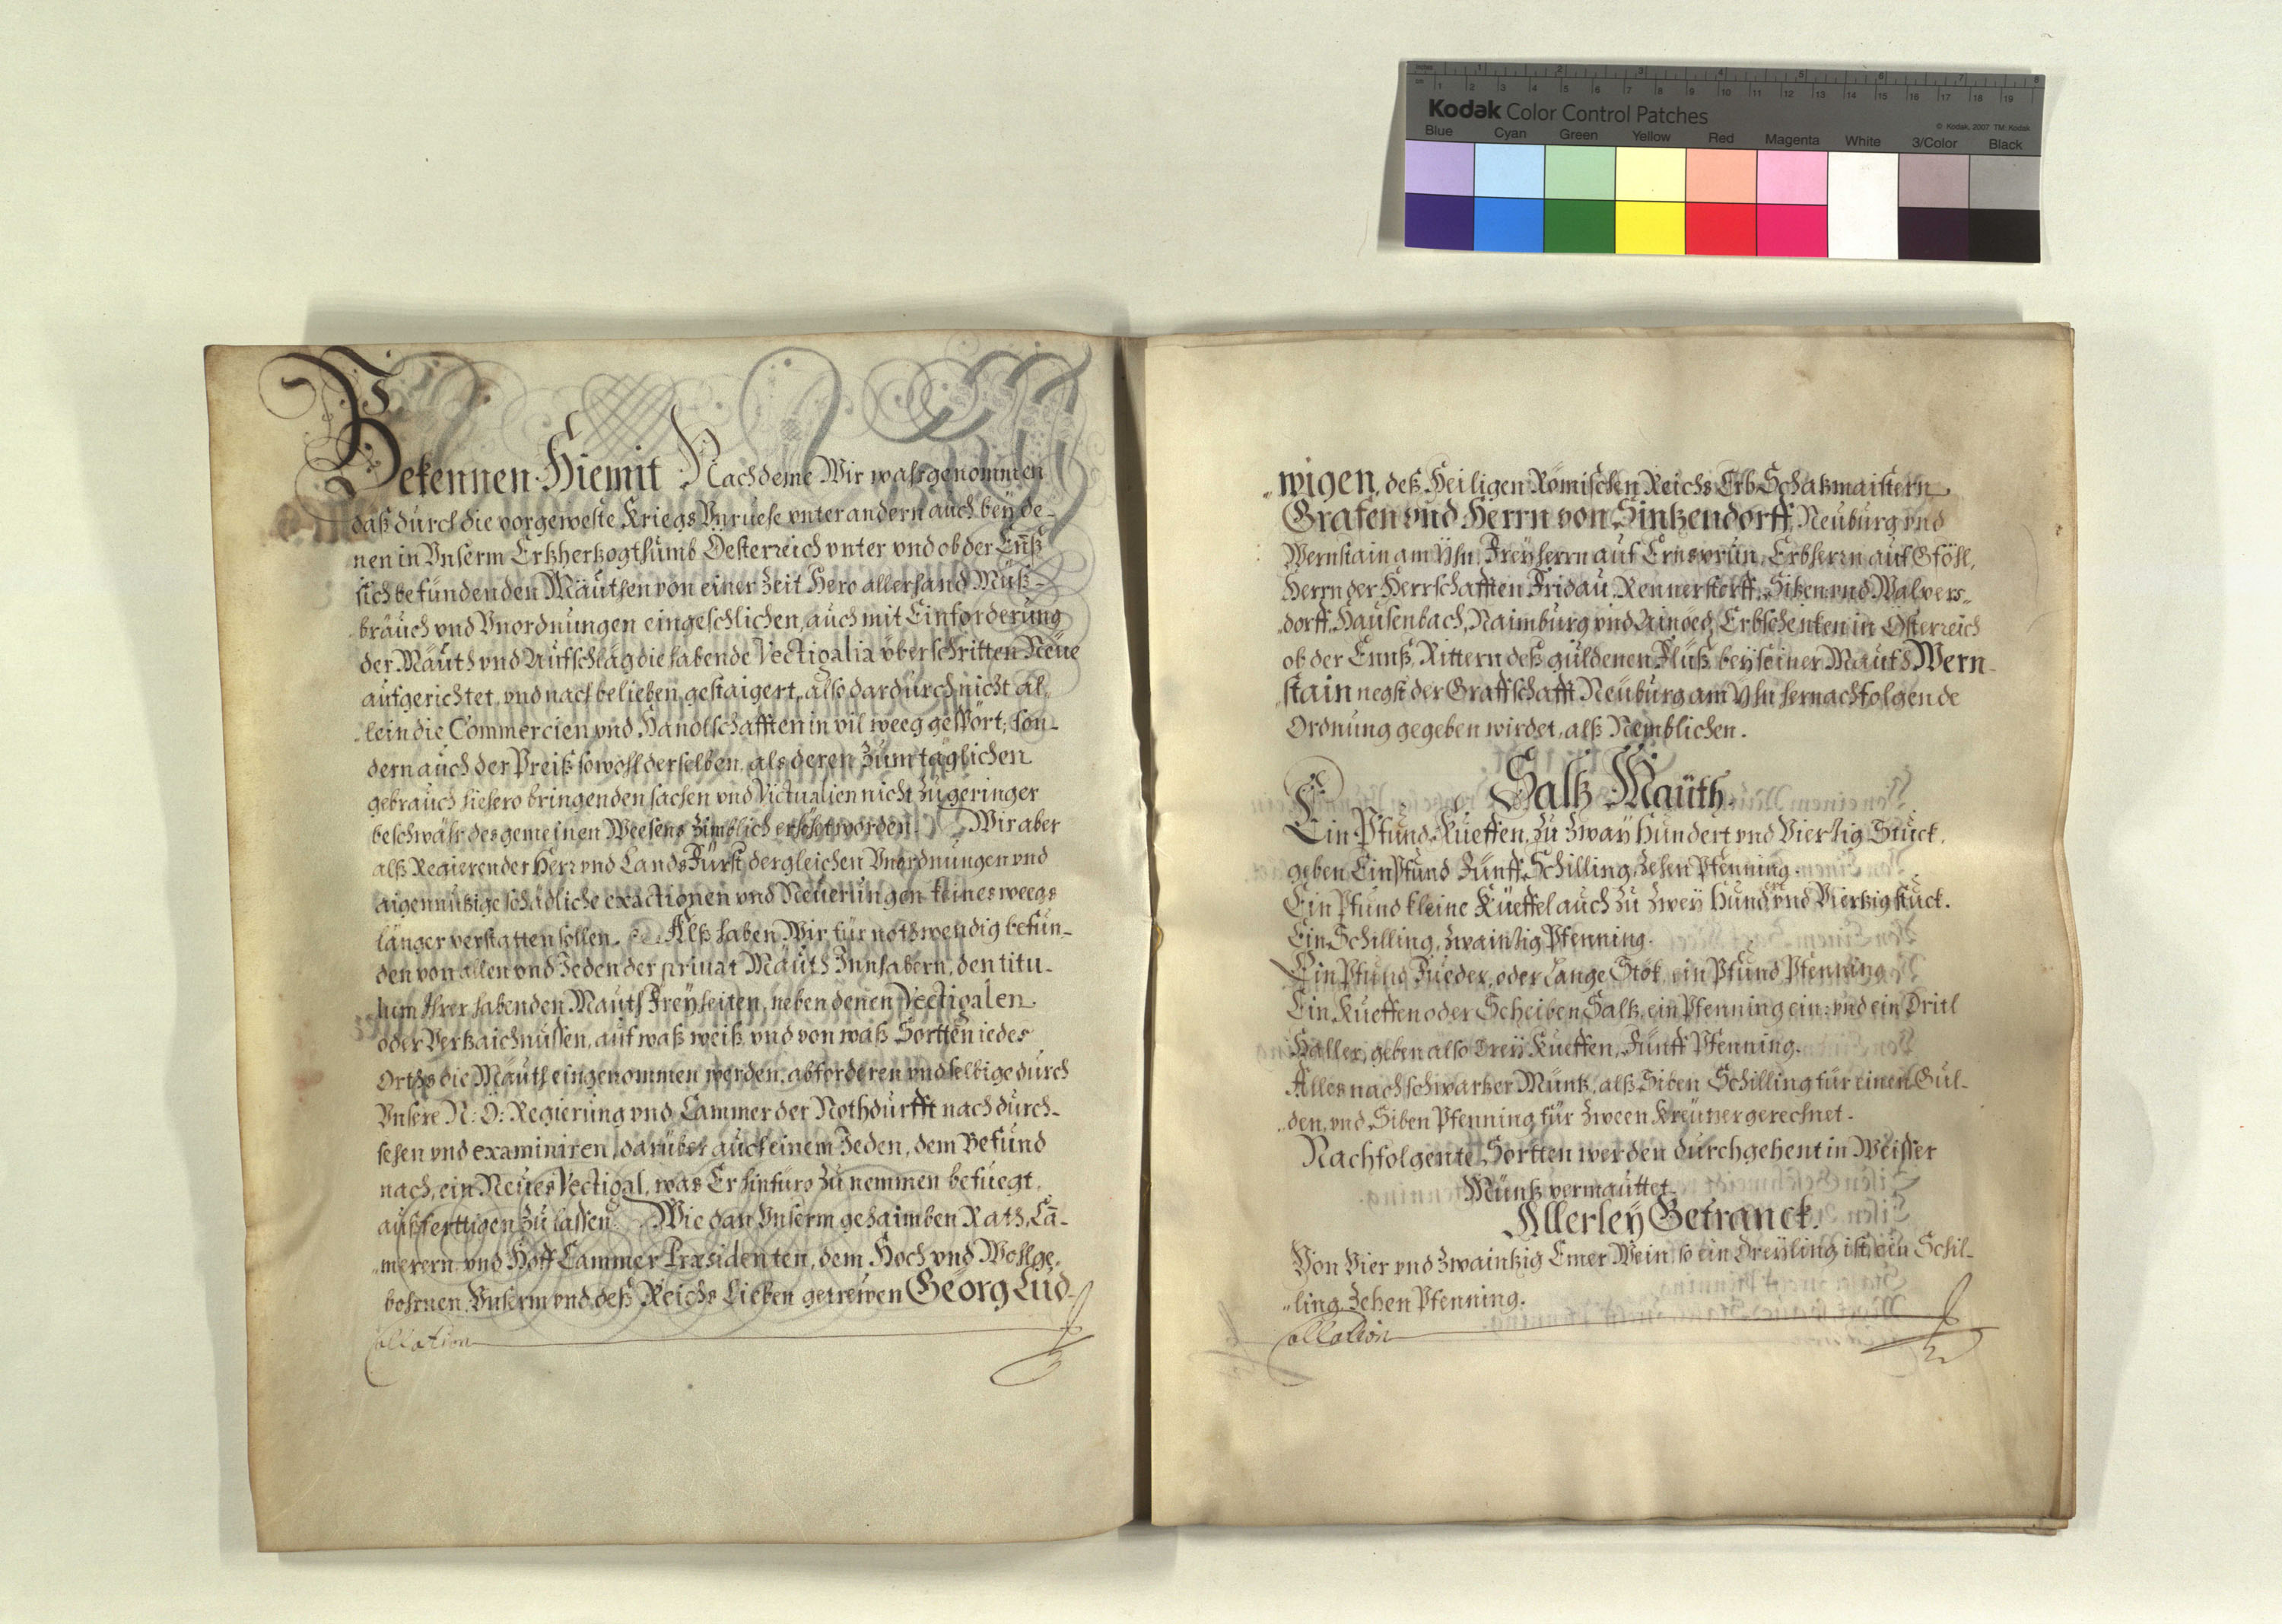 Inches 1 2 3 4 5 6 7 8
cm 1 2 3 4 5 6 7 8 9 10 11 12 13 14 15 16 17 18 19
Kodak Color Control Patches
© Kodak, 2007 TM: Kodak
Blue Cyan Green Yellow Red Magenta White 3/Color Black
Bekennen Hiemit Nachdeme Wir wahrgenommen
daß durch die vorgeweste Kriegs Vnruehe vnter andern auch beÿ de-
nen in Vnserm Ertzhertzogthumb Oesterreich vnter vnd ob der Ennß
sich befundenden Mäuthen von einer Zeit Hero allerhand Müß-
bräuch vnd Vnordnungen eingeschlichen, auch mit Einforderung
der Mauth vnd Aufschlag die habende Vectigalia überschritten Neüe
aufgerichtet, vnd nach belieben gestaigert, also dardurch nicht al-
lein die Commercien vnd Handlschafften in vil weeg gespört, son-
dern auch der Preiß sowohl derselben, als deren Zum täglichen
gebrauch hiehero bringenden sachen vnd Victualien nicht Zu geringer
beschwähr des gemeinen Weesens Zimblich erhöhet worden. Wir aber
alß Regierender Herr vnd LandsFürst dergleichen Vnordnungen vnd
aigennützige schädliche exactionen vnd Neüerungen keines weegs
länger verstatten sollen. Alß haben Wir für nothwendig befun-
den von allen vnd Jeden der privat Mauth Innhabern, den titu-
lum Ihrer habenden Mauth Freÿheiten, neben denen Vectigalen
oder Vertzaichnussen, auf waß weiß, vnd von waß Sortten iedes
Orths die Mauth eingenommen werden, abforderen vnd selbige durch
Vnsere N: Ö: Regierung vnd Cammer der Nothdurfft nach durch-
sehen vnd examiniren, darüber auch einem Jeden, dem Befund
nach, ein Neües Vectigal, was Er hinfüro Zu nemmen befuegt,
außferttigen Zu lassen. Wie dan Vnserm gehaimben Rath, Cā-
merern, vnd Hoff Cammer Præsidenten, dem Hoch vnd Wohlge-
bohrnen, Vnserm vnd deß Reichs Lieben getrewen Georg Lud-
Collation
wigen, deß Heiligen Römischen Reichs Erb Schatzmaistern
Grafen vnd Herrn von Sintzendorff, Neuburg vnd
Wernstain am Yhn, Freÿherrn auf Ernsprun, Erbherrn auf Gföhl,
Herrn der Herrschafften Fridau, Rennerstorff, Sitzen vnd Walpers-
dorff, Hausenbach, Raimburg vnd Ainöed, Erbschenken in Österreich
ob der Ennß, Rittern deß guldenen Fluß, beÿ seiner Mauth Wern-
stain negst der Graffschafft Neuburg am Yhn hernachfolgende
Ordnung gegeben wirdet, alß Nemblichen.
Saltz Mauth.
Ein Pfund Kueffen, Zu Zwaÿ Hundert vnd Viertzig Stuck,
geben Ein Pfund Fünff Schilling Zehen Pfenning.
Ein Pfund kleine Küeffel auch Zu Zweÿ Hundert vnd Viertzig stuck.
Ein Schilling, Zwaintzig Pfenning.
Ein Pfund Fueder, oder Lange Stök, ein Pfund Pfenning
Ein Kueffen oder Scheiben Saltz, ein Pfenning ein: vnd ein Dritl
Haller, geben also Dreÿ Kueffen, Fünff Pfenning.
Alles nach schwartzer Müntz, alß Siben Schilling für einen Gul-
den, vnd Siben Pfenning für Zween Kreützer gerechnet.
Nachfolgente Sortten werden durchgehent in Weisser
Müntz vermauttet.
Allerleÿ Getranck.
Von Vier vnd Zwaintzig Emer Wein, so ein Dreÿling ist, ein Schil-
ling Zehen Pfenning.
Collation